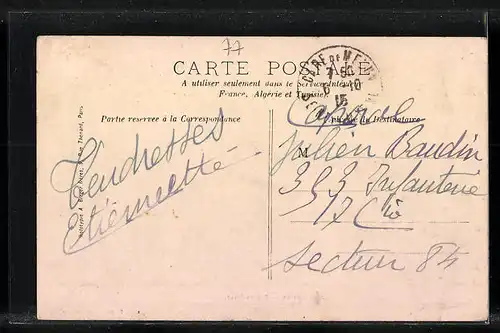 77
CARTE POSTALE
A utiliser seulement dans le Service Intérieur
France, Algérie et Tunisie
Partie réservée à la Correspondance
Adresse du Destinataire
Tendresses
Etiennette
Caporal
M
Julien Baudin
303 Infanterie
17 Cie
Secteur 84